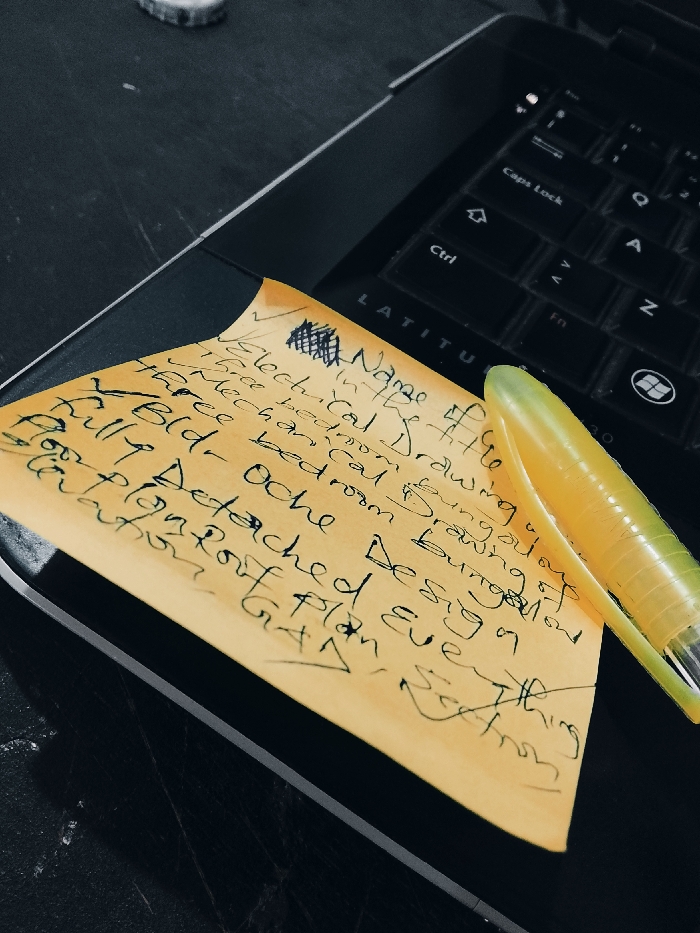 Caps Lock
Q
A
Ctrl
Z
Fn
LATITU
✓ Name of
in the title
✓ Electrical Drawing of
three bedroom bungalow
✓ Mechanical Drawing of
three bedroom bungalow
✓ Bld- Oche Design
Fully Detached Everything
Floor plan, Roof plan, Section
Elevation, GAD.